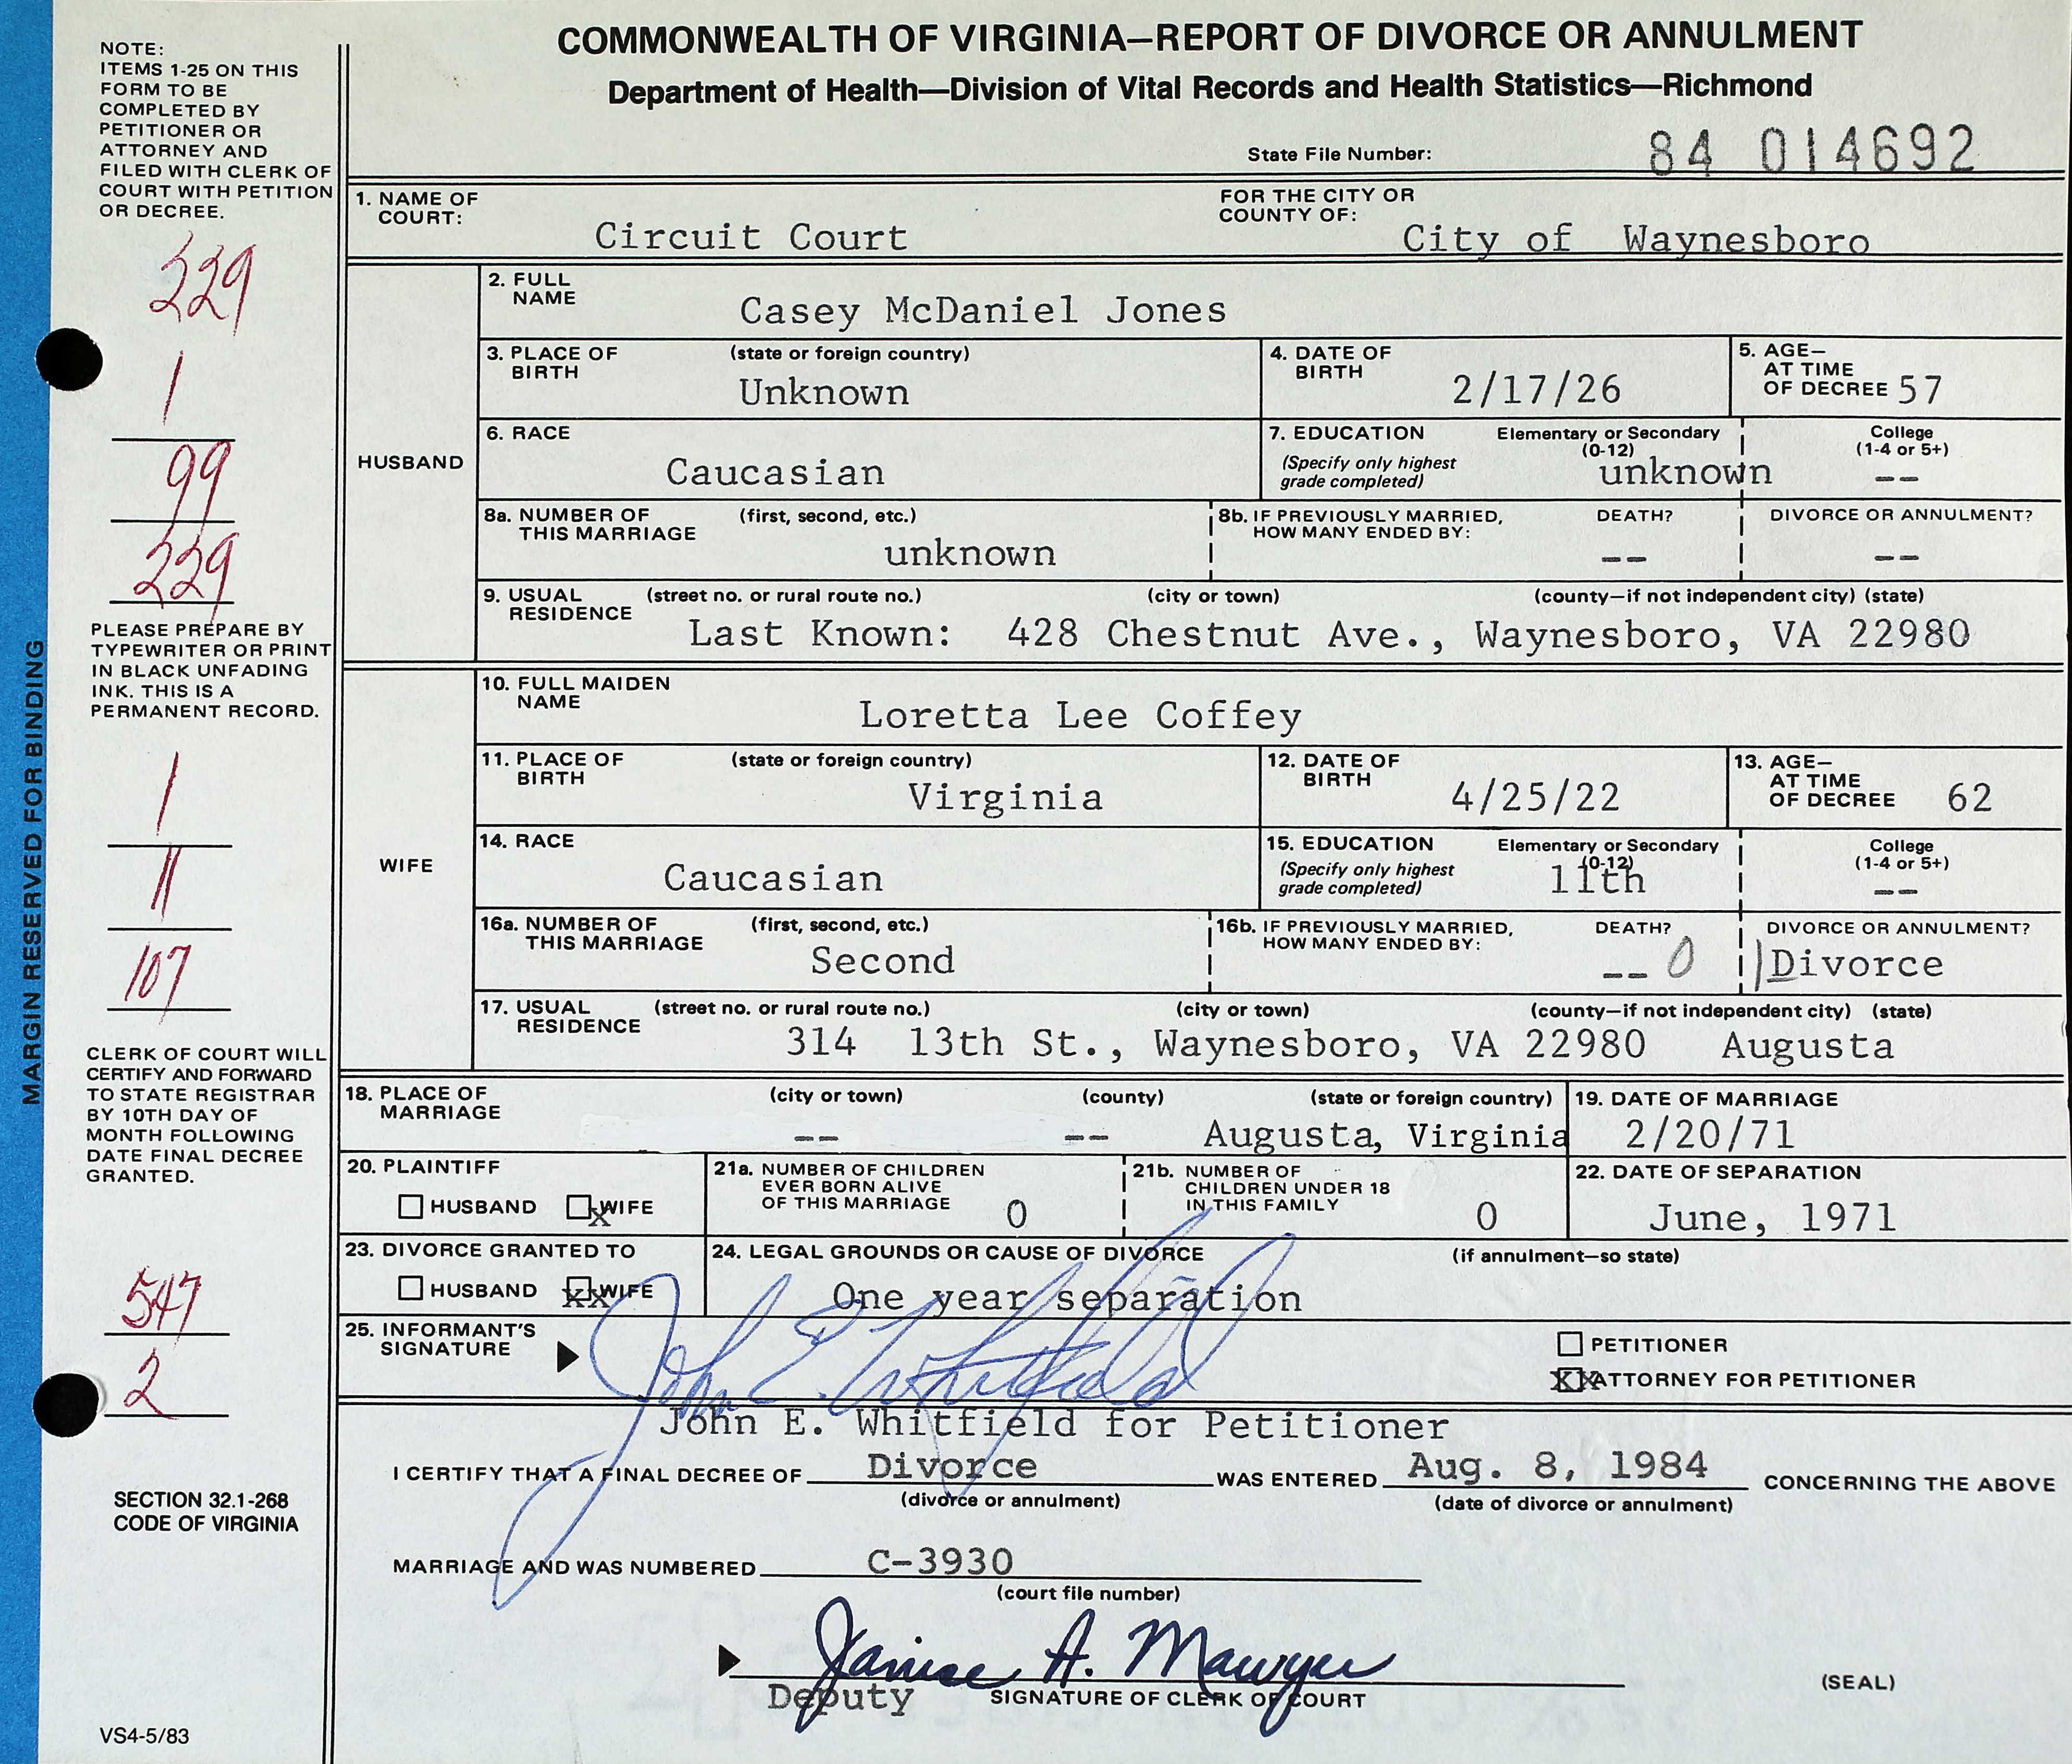 COMMONWEALTH OF VIRGINIA—REPORT OF DIVORCE OR ANNULMENT
Department of Health—Division of Vital Records and Health Statistics—Richmond
State File Number: 84 014692
NOTE:
ITEMS 1-25 ON THIS
FORM TO BE
COMPLETED BY
PETITIONER OR
ATTORNEY AND
FILED WITH CLERK OF
COURT WITH PETITION
OR DECREE.
229
1
99
229
PLEASE PREPARE BY
TYPEWRITER OR PRINT
IN BLACK UNFADING
INK. THIS IS A
PERMANENT RECORD.
1
11
107
CLERK OF COURT WILL
CERTIFY AND FORWARD
TO STATE REGISTRAR
BY 10TH DAY OF
MONTH FOLLOWING
DATE FINAL DECREE
GRANTED.
547
2
SECTION 32.1-268
CODE OF VIRGINIA
VS4-5/83
MARGIN RESERVED FOR BINDING
1. NAME OF COURT: Circuit Court FOR THE CITY OR COUNTY OF: City of Waynesboro
HUSBAND
2. FULL NAME Casey McDaniel Jones
3. PLACE OF BIRTH (state or foreign country) Unknown 4. DATE OF BIRTH 2/17/26 5. AGE— AT TIME OF DECREE 57
6. RACE Caucasian 7. EDUCATION (Specify only highest grade completed) Elementary or Secondary (0-12) unknown College (1-4 or 5+) --
8a. NUMBER OF THIS MARRIAGE (first, second, etc.) unknown 8b. IF PREVIOUSLY MARRIED, HOW MANY ENDED BY: DEATH? -- DIVORCE OR ANNULMENT? --
9. USUAL RESIDENCE (street no. or rural route no.) (city or town) (county—if not independent city) (state)
Last Known: 428 Chestnut Ave., Waynesboro, VA 22980
WIFE
10. FULL MAIDEN NAME Loretta Lee Coffey
11. PLACE OF BIRTH (state or foreign country) Virginia 12. DATE OF BIRTH 4/25/22 13. AGE— AT TIME OF DECREE 62
14. RACE Caucasian 15. EDUCATION (Specify only highest grade completed) Elementary or Secondary (0-12) 11th College (1-4 or 5+) --
16a. NUMBER OF THIS MARRIAGE (first, second, etc.) Second 16b. IF PREVIOUSLY MARRIED, HOW MANY ENDED BY: DEATH? -- 0 DIVORCE OR ANNULMENT? 1 Divorce
17. USUAL RESIDENCE (street no. or rural route no.) (city or town) (county—if not independent city) (state)
314 13th St., Waynesboro, VA 22980 Augusta
18. PLACE OF MARRIAGE (city or town) -- (county) -- (state or foreign country) Augusta, Virginia 19. DATE OF MARRIAGE 2/20/71
20. PLAINTIFF HUSBAND x WIFE 21a. NUMBER OF CHILDREN EVER BORN ALIVE OF THIS MARRIAGE 0 21b. NUMBER OF CHILDREN UNDER 18 IN THIS FAMILY 0 22. DATE OF SEPARATION June, 1971
23. DIVORCE GRANTED TO HUSBAND xx WIFE 24. LEGAL GROUNDS OR CAUSE OF DIVORCE (if annulment—so state) One year separation
25. INFORMANT'S SIGNATURE John E. Whitfield PETITIONER
XX ATTORNEY FOR PETITIONER
John E. Whitfield for Petitioner
I CERTIFY THAT A FINAL DECREE OF Divorce WAS ENTERED Aug. 8, 1984 CONCERNING THE ABOVE
(divorce or annulment) (date of divorce or annulment)
MARRIAGE AND WAS NUMBERED C-3930
(court file number)
Janise A. Mawyer
Deputy SIGNATURE OF CLERK OF COURT (SEAL)